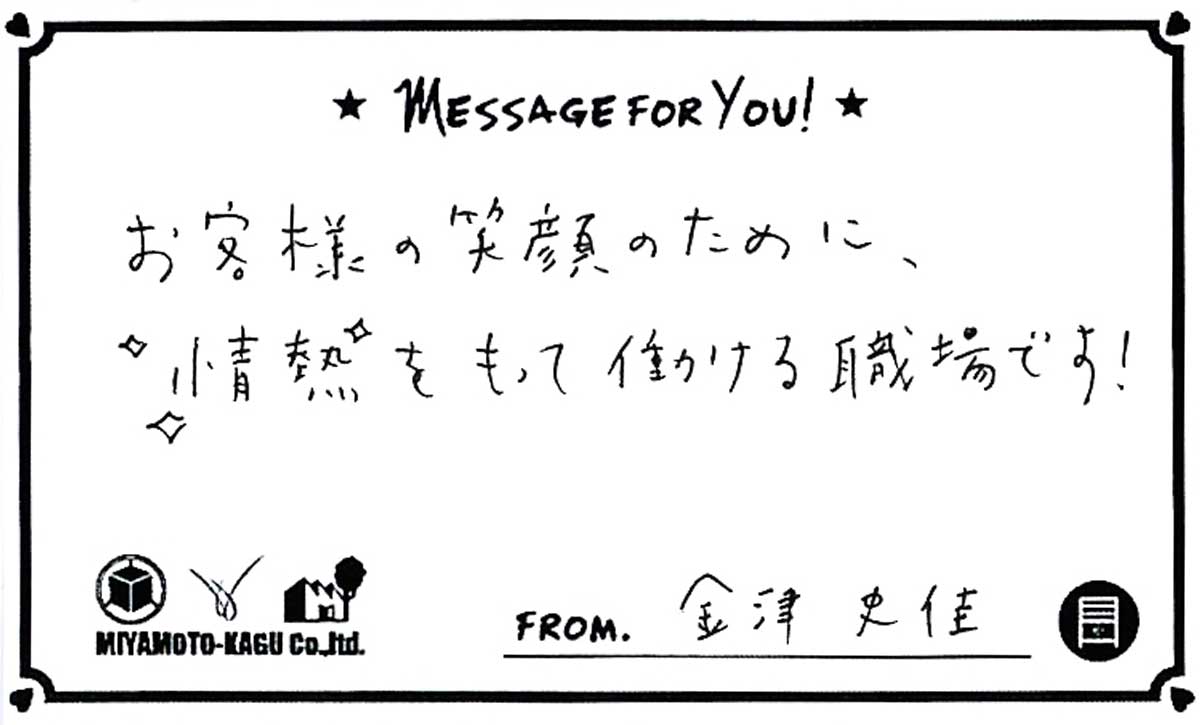 ★ MESSAGE FOR YOU! ★
お客様の笑顔のために、
情熱をもって働ける職場です!
MIYAMOTO-KAGU Co.,ltd.
FROM. 金津 史佳